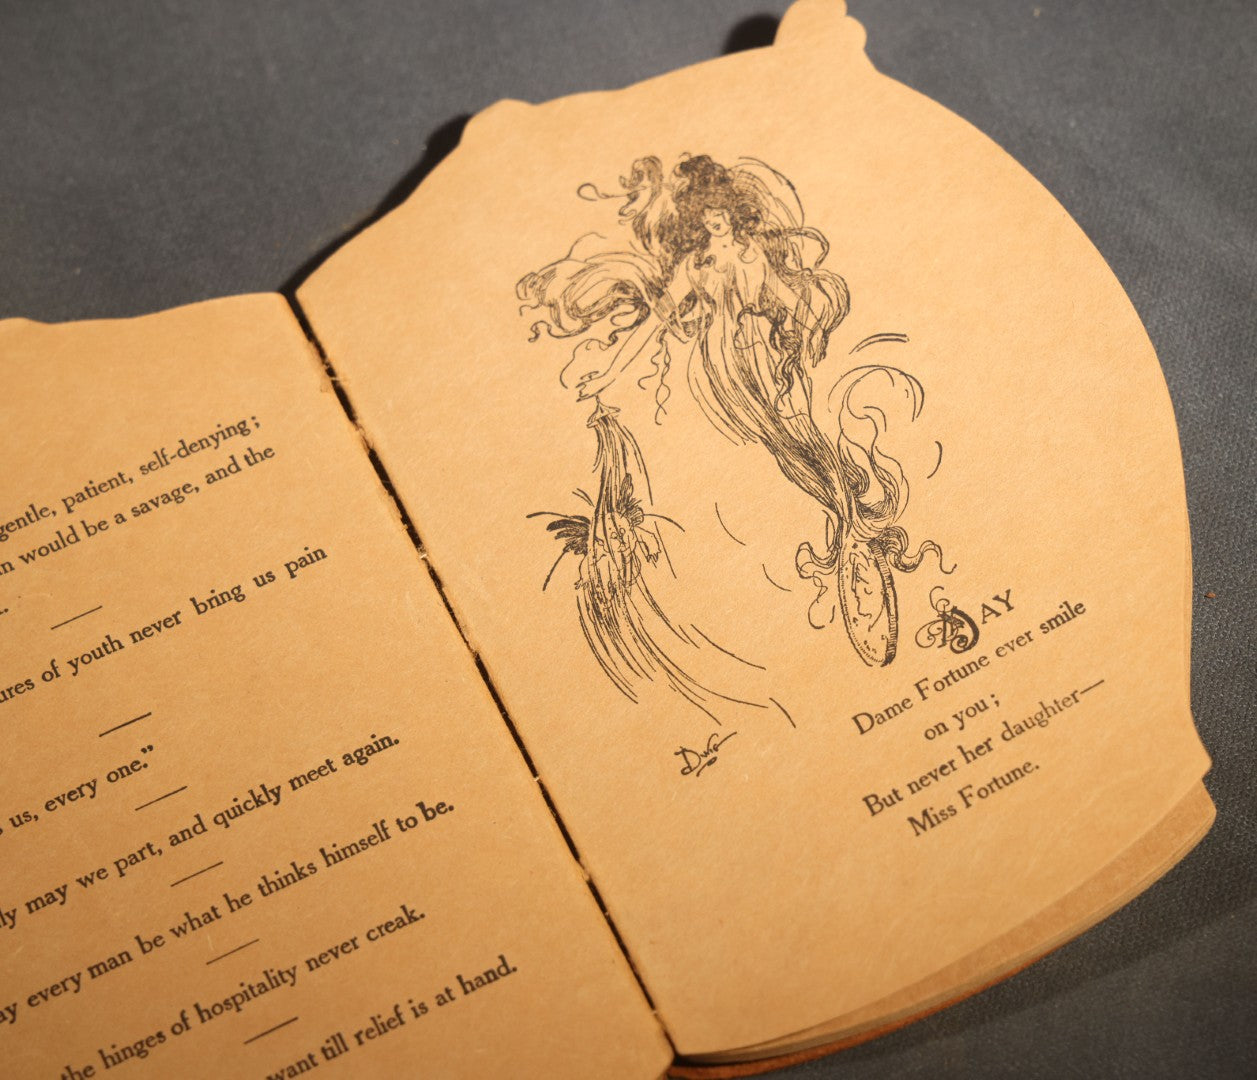 gentle, patient, self-denying;
would be a savage, and the
of youth never bring us pain
us, every one.”
may we part, and quickly meet again.
every man be what he thinks himself to be.
the hinges of hospitality never creak.
want till relief is at hand.
MAY
Dame Fortune ever smile
on you;
But never her daughter—
Miss Fortune.